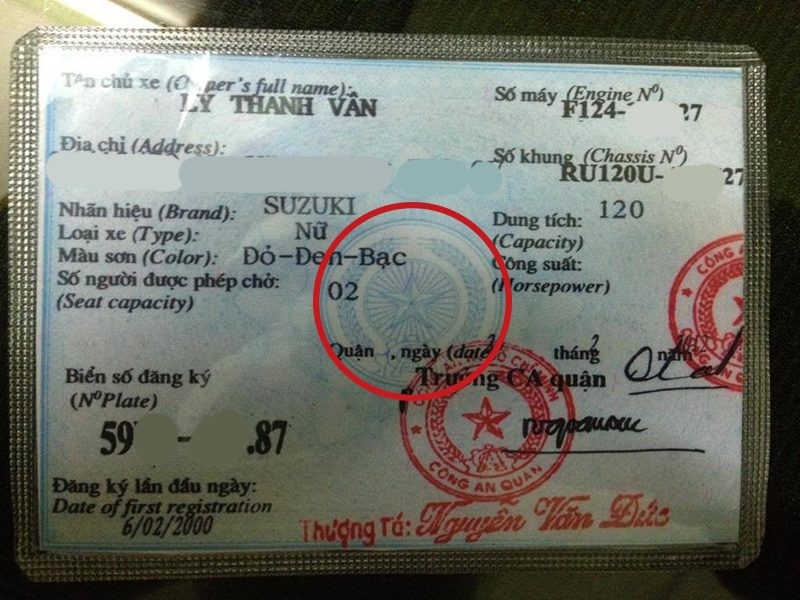 Tên chủ xe (O per's full name):
LÝ THANH VÂN
Số máy (Engine Nº)
F124- 27
Địa chỉ (Address):
Số khung (Chassis Nº)
RU120U- 27
Nhãn hiệu (Brand): SUZUKI
Dung tích: 120
(Capacity)
Loại xe (Type): Nữ
Màu sơn (Color): Đỏ-Đen-Bạc
Công suất:
(Horsepower)
Số người được phép chở: 02
(Seat capacity)
Quận , ngày (date) 2 tháng 2 năm
Trưởng CA quận
Biển số đăng ký
(NºPlate)
59 - .87
CÔNG AN QUẬN
CÔNG AN
Đăng ký lần đầu ngày:
Date of first registration
6/02/2000
Thượng Tá: Nguyễn Văn Đức